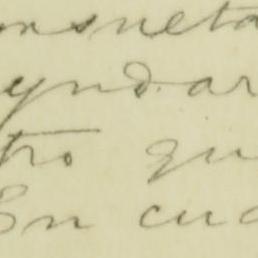 onsueta
yndar
tro qu
En cua